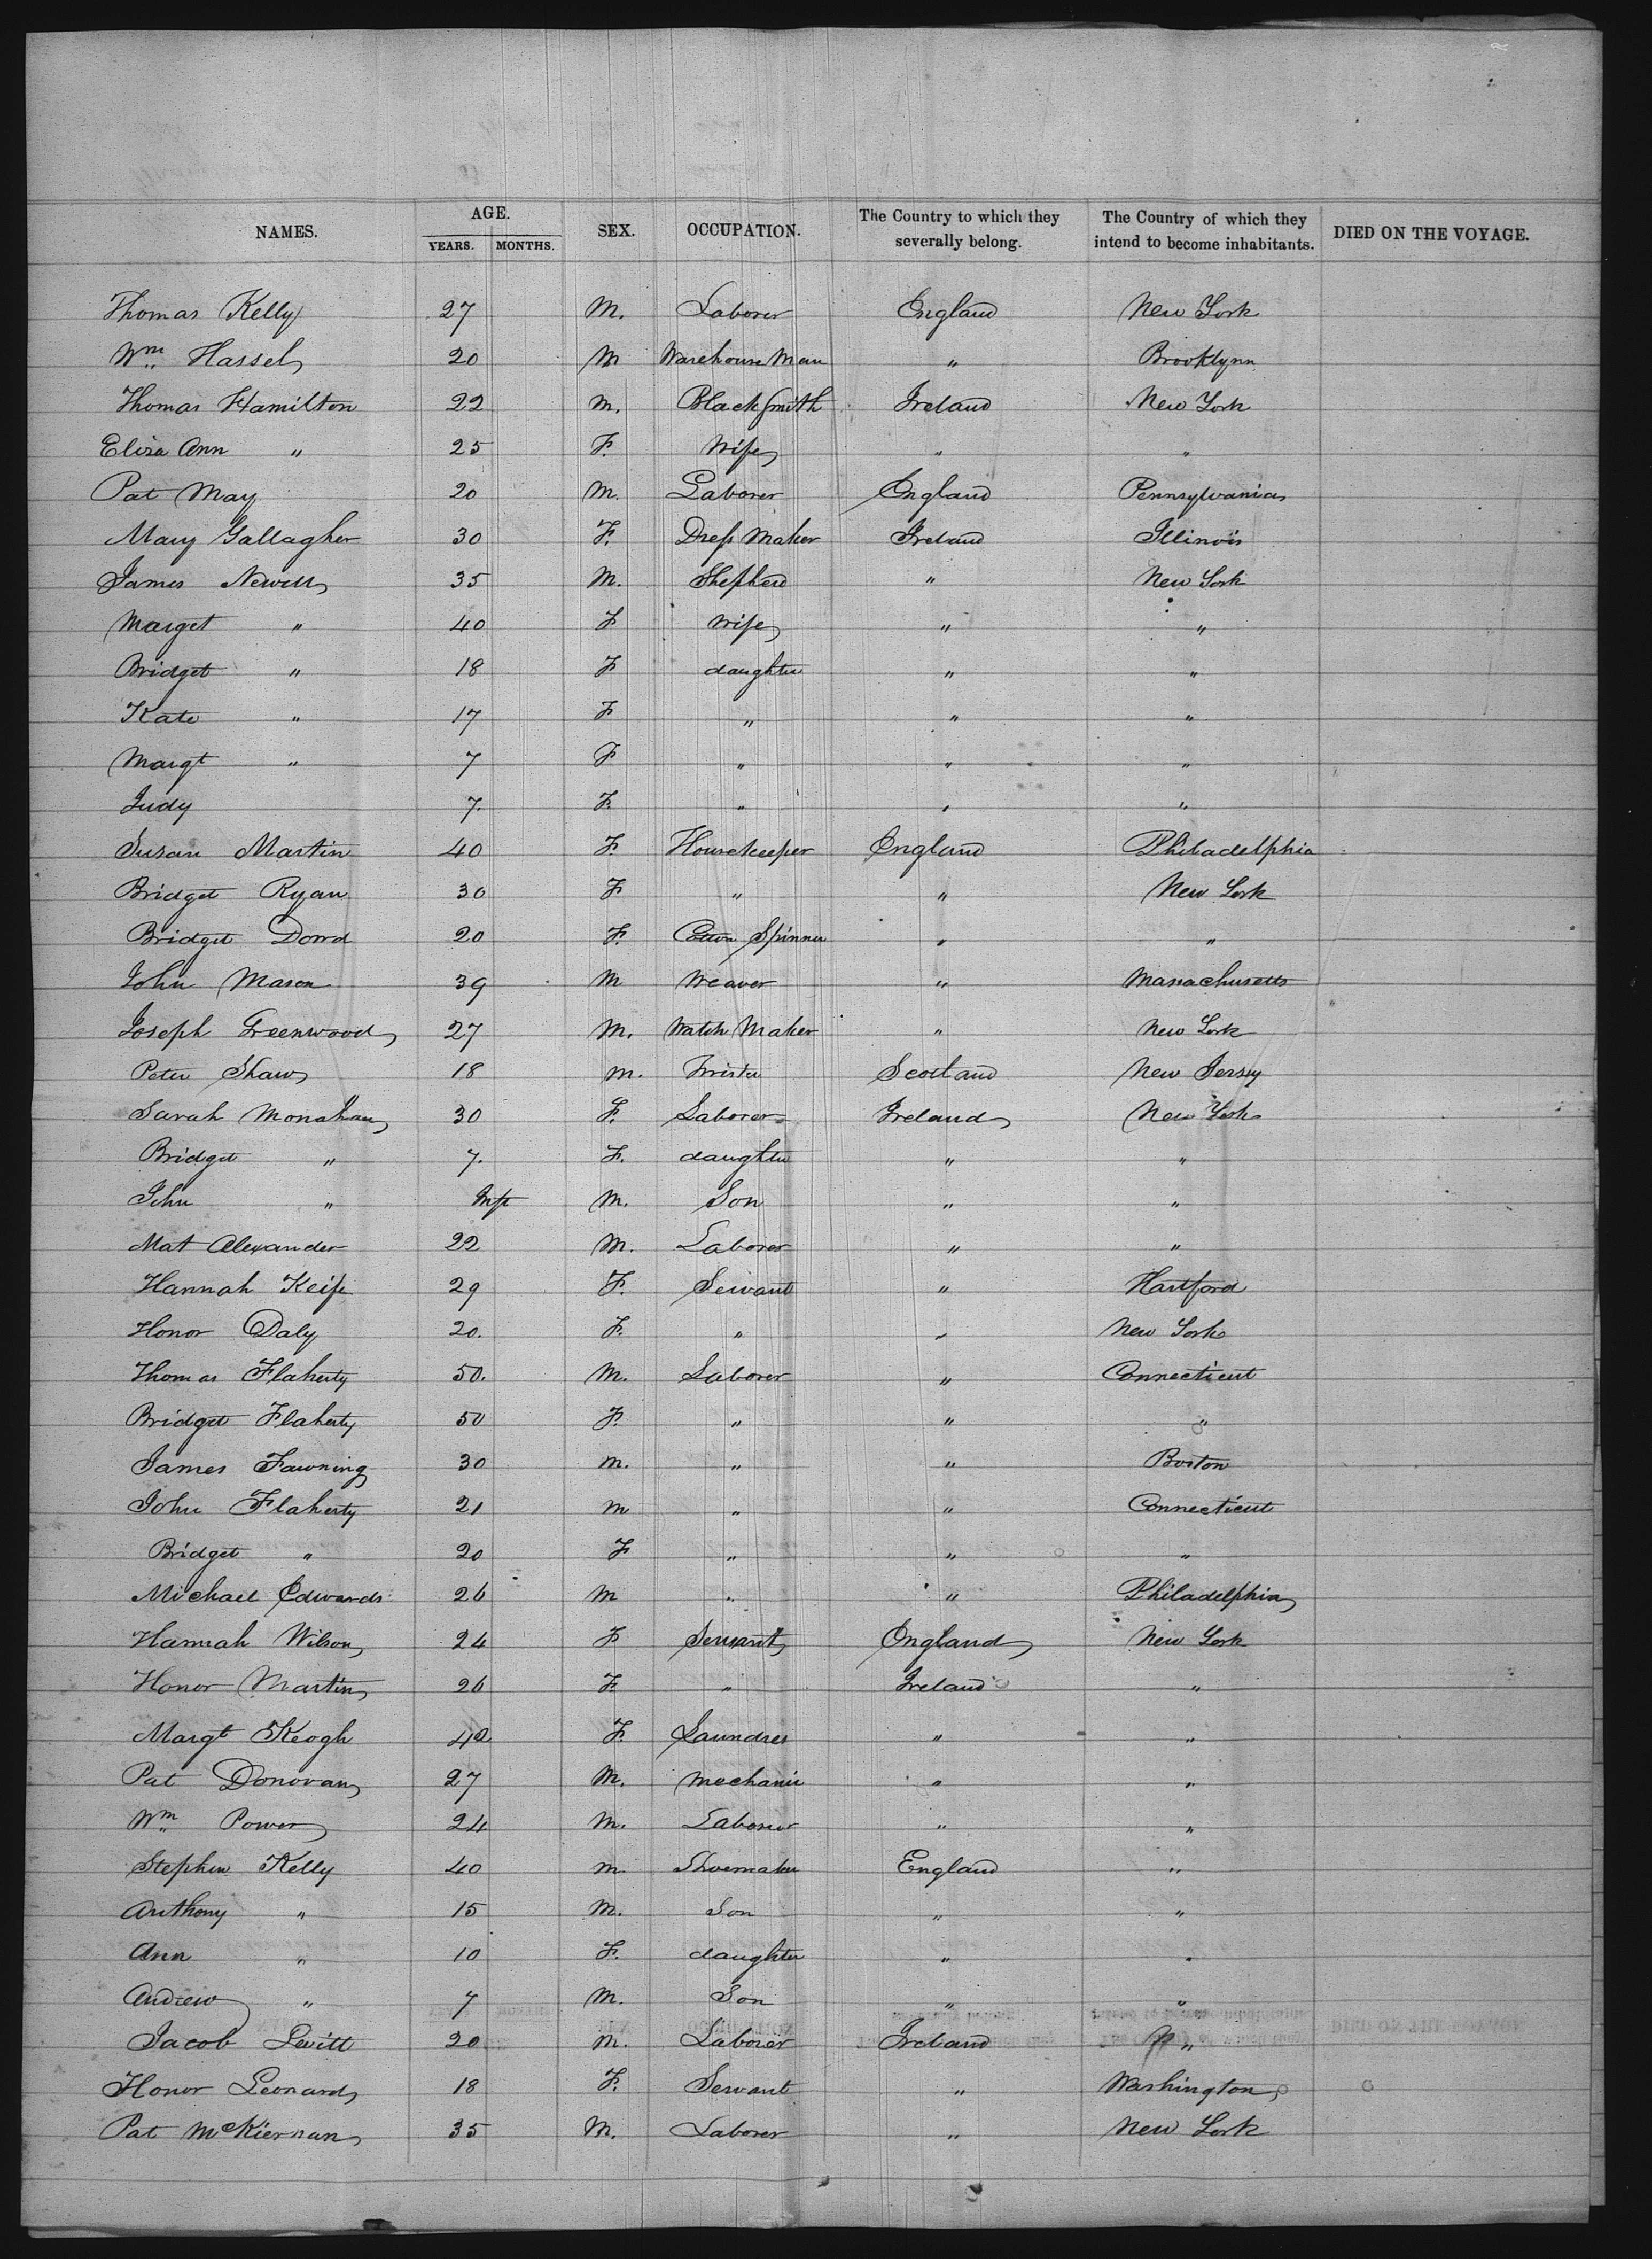 NAMES. AGE. YEARS. MONTHS. SEX. OCCUPATION. The Country to which they severally belong. The Country of which they intend to become inhabitants. DIED ON THE VOYAGE.
Thomas Kelly 27 M. Laborer England New York
Wm Hassel 20 M Warehouse Man " Brooklynn
Thomas Hamilton 22 M. Black Smith Ireland New York
Eliza Ann " 25 F. Wife " "
Pat May 20 M. Laborer England Pennsylvania
Mary Gallagher 30 F. Dress Maker Ireland Illinois
James Newell 35 M. Shepherd " New York
Marget " 40 F Wife " "
Bridget " 18 F daughter " "
Kate " 17 F " " "
Margt " 7 F " " "
Judy 7. F. " " "
Susan Martin 40 F. Housekeeper England Philadelphia
Bridget Ryan 30 F " " New York
Bridget Dowd 20 F. Cotton Spinner " "
John Mason 39 M Weaver " Massachusetts
Joseph Greenwood 27 M. Watch Maker " New York
Peter Shaw 18 M. Scotland New Jersey
Sarah Monahan 30 F. Laborer Ireland New York
Bridget " 7. F. daughter " "
John " Inft M. Son " "
Mat Alexander 22 M. Laborer " "
Hannah Keife 29 F. Servant " Hartford
Honor Daly 20. F. " " New York
Thomas Flaherty 50. M. Laborer " Connecticut
Bridget Flaherty 50 F. " " "
James Fawning 30 M. " " Boston
John Flaherty 21 M " " Connecticut
Bridget " 20 F " " "
Michael Edwards 26 M " " Philadelphia
Hannah Wilson 24 F Servant England New York
Honor Martin 26 F. " Ireland "
Margt Keogh 42 F. Laundres " "
Pat Donovan 27 M. Mechanic " "
Wm Power 24 M. Laborer " "
Stephen Kelly 40 M. Shoemaker England "
Anthony " 15 M. Son " "
Ann " 10 F. daughter " "
Andrew " 7 M. Son " "
Jacob Levitt 20 M. Laborer Ireland "
Honor Leonard 18 F. Servant " Washington
Pat McKiernan 35 M. Laborer " New York